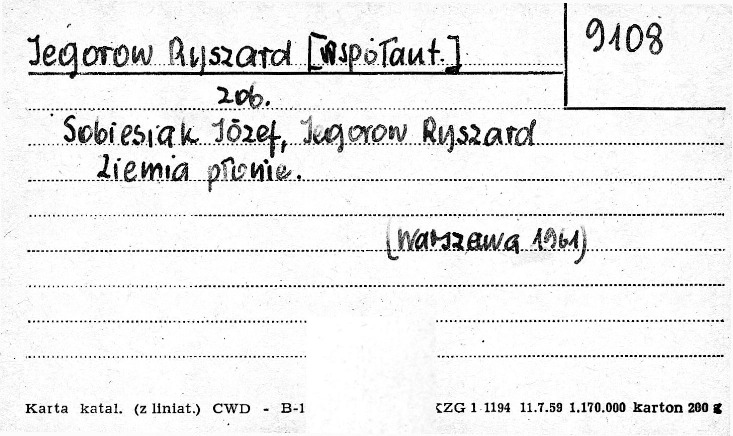 Jegorow Ryszard [współaut.]
9108
zob.
Sobiesiak Józef, Jegorow Ryszard
Ziemia płonie.
(Warszawa 1961)
Karta katal. (z liniat.) CWD - B-1 CZG 1 1194 11.7.59 1.170.000 karton 200 g